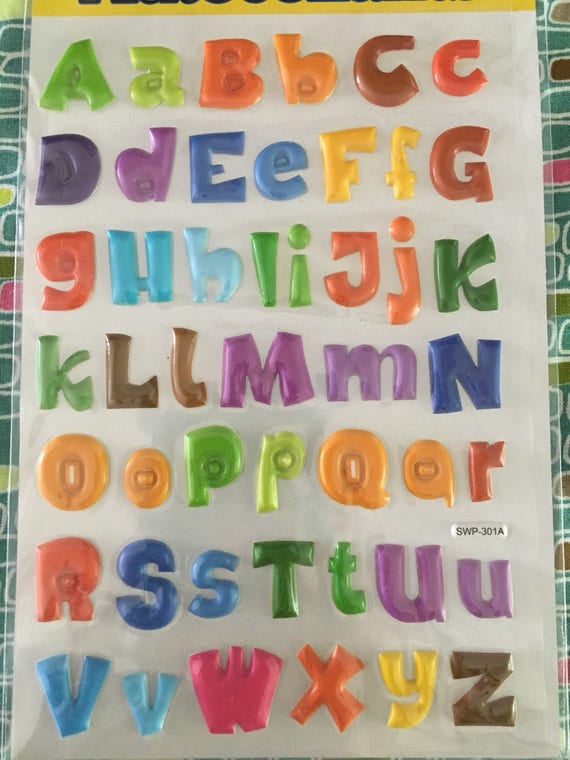 A a B b C c
D d E e F f G
g H h I i J j K
k L l M m N
O o P p Q q r
SWP-301A
R S s T t U u
V v W X y Z